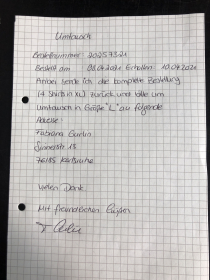 Umtausch
Bestellnummer 20257321
Bestellt am 08.04.2021 Erhalten 10.04.2021
Anbei sende ich die komplette Bestellung
(4 Shirts in XL) zurück und bitte um
Umtausch in Größe "L" an folgende
Adresse:
Fabiana
76185 Karlsruhe
Vielen Dank.
Mit freundlichen Grüßen